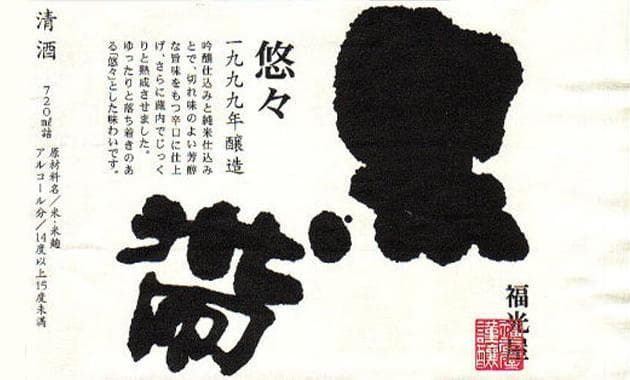 黒帯
福光屋
悠々
一九九九年醸造
吟醸仕込みと純米仕込み
とで、切れ味のよい芳醇
な旨味をもつ辛口に仕上
げ、さらに蔵内でじっく
りと熟成させました。
ゆったりと落ち着きのあ
る「悠々」とした味わいです。
清酒
720㎖詰
原材料名/米・米麹
アルコール分/14度以上15度未満